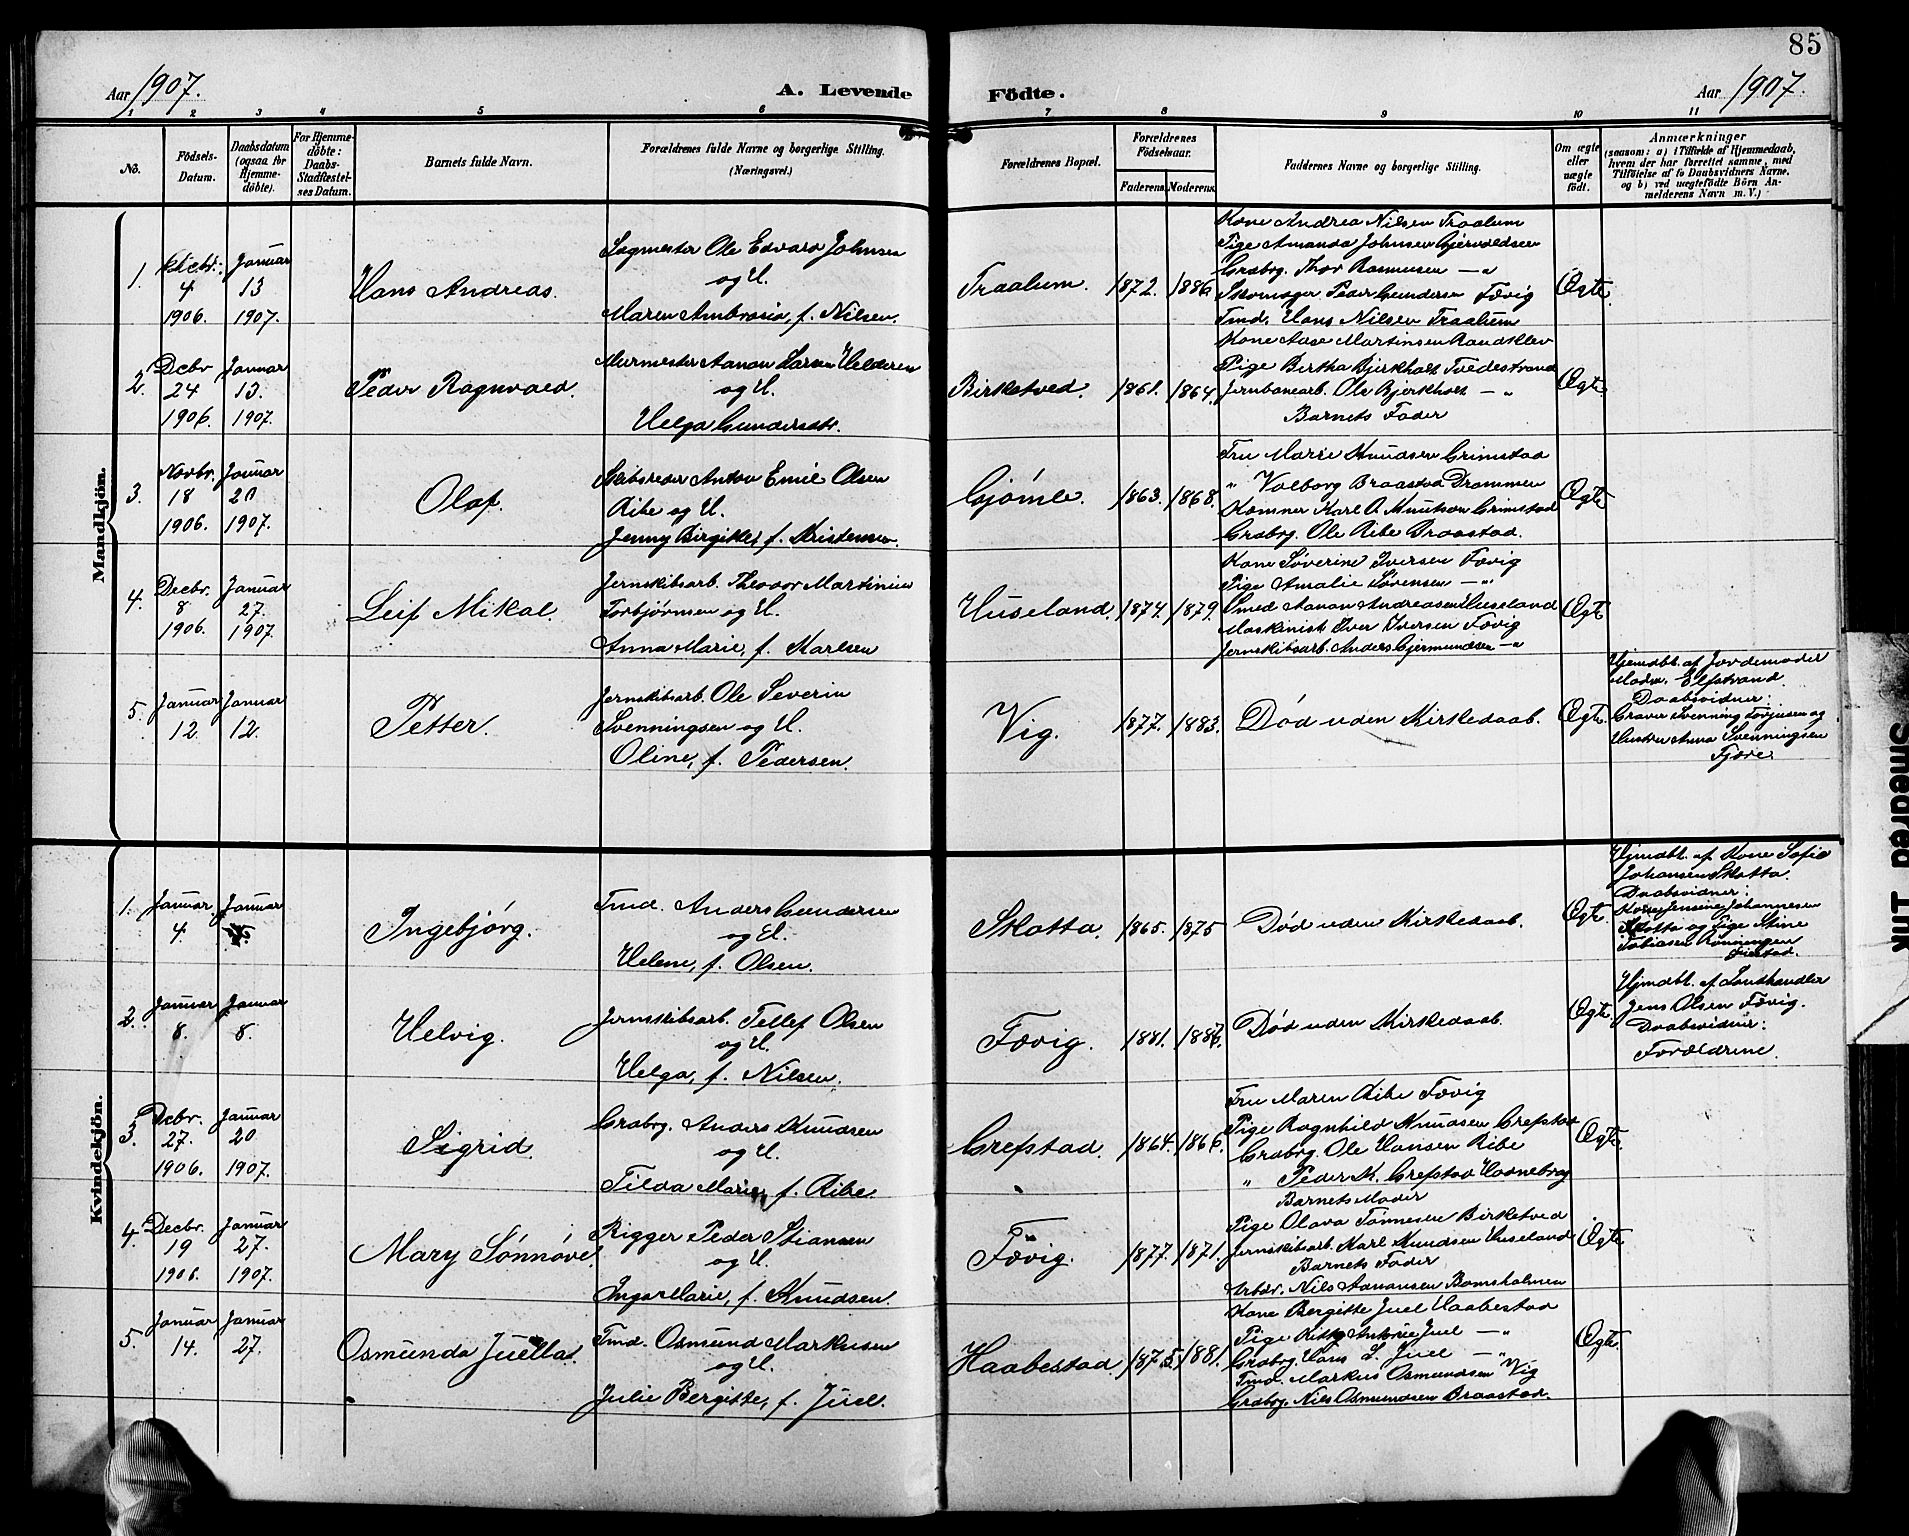 85
Aar 1907. A. Levende Födte. Aar 1907.
1 2 3 4 5 6 7 8 9 10 11
No. Födsels-Datum. Daabsdatum (ogsaa for Hjemme-döbte). For Hjemme-döbte: Daabs-Stadfæstel-ses Datum. Barnets fulde Navn. Forældrenes fulde Navne og borgerlige Stilling. (Næringsvei.) Forældrenes Bopæl. Forældrenes Födselsaar. Faderens. Moderens. Faddernes Navne og borgerlige Stilling. Om ægte eller uægte födt. Anmærkninger (saasom: a) i Tilfælde af Hjemmedaab, hvem der har forrettet samme, med Tilföielse af to Daabsvidners Navne, og b) ved uægtefödte Börn An-melderens Navn m. V.)
Mandkjön.
1. 4 1906. Januar 13 1907. Hans Andreas.
Sagmester Ole Edvard Johnsen
og H.
Maren Ambrosia, f. Nilsen.
Traalum. 1872. 1886.
Kone Andrea Nilsen Traalum
Pige Amanda Johnsen Gjervoldsen
Grabrg. Thor Rasmussen — "
Skomager Peder Gundersen Fævig
Tmd. Hans Nilsen Traalum
Ægte.
2. Decbr 24 1906. Januar 13. 1907. Peder Ragnvald.
Murmester Aanon Larsen Helderen
og H.
Helga Gundersdtr.
Birketved. 1861. 1864.
Kone Aase Martinsen Randklev
Pige Bertha Bjerkholt Tvedestrand
Jernbanearb. Ole Bjerkholt — "
Barnets Fader
Ægte
3. Novbr. 18 1906. Januar 20 1907. Olaf.
Skibsreder Anton Emil Olsen
Ribe og H.
Jenny Birgitte, f. Kristensen.
Gjømle. 1863. 1868.
Fru Marie Knudsen Grimstad
" Valborg Braastad Drammen
Kæmner Karl O. Knutson Grimstad
Grabrg. Ole Ribe Braastad.
Ægte
4. Decbr. 8 1906. Januar 27. 1907. Leif Mikal.
Jernskibsarb. Theodor Martinius
Torbjørnsen og H.
Anna Marie, f. Karlsen
Huseland. 1874. 1879.
Kone Søverine Iversen Fævig
Pige Amalie Sørensen — "
Smed Aanon Andreasen Huseland
Maskinist Iver Iversen Fævig
Jernskibsarb. Anders Gjermundsen — "
Ægte
5. Januar 12. Januar 12. Petter.
Jernskibsarb. Ole Severin
Svenningsen og H.
Oline, f. Pedersen.
Vig. 1877. 1883. Død uden Kirkedaab. Ægte.
Hjemdbt. af Jordemoder
Elfstrand.
Daabsvidner:
Graver Svenning Torjusen og
Hustru Anna Svenningsen
Fjære.
Kvindekjön.
1. Januar 4. Januar Ingebjørg.
Tmd. Anders Gundersen
og H.
Helene, f. Olsen.
Skotta. 1865. 1875 Død uden Kirkedaab. Ægte.
Hjmdbt. af Kone Sofie
Johansen Skotta.
Daabsvidner:
Kone Jensine Johannesen
Skotta og Pige Stine
Tobiasen Rønningen
2. Januar 8. Januar 8. Helvig.
Jernskibsarb. Tellef Olsen
og H.
Helga, f. Nilsen.
Fævig. 1881. Død uden Kirkedaab. Ægte.
Hjmdbt. af Landhandler
Jens Olsen Fævig.
Daabsvidner:
Forældrene.
3. Decbr. 27. 1906. Januar 20 1907. Sigrid.
Grabrg. Anders Knudsen
og H.
Tilda Marie, f. Ribe.
Grefstad. 1864. 1866.
Fru Maren Ribe Fævig
Pige Ragnhild Knudsen Grefstad
Grabrg. Ole Hansen Ribe
" Peder K. Grefstad Havnebrog
Barnets Moder
Ægte.
4. Decbr. 19 1906. Januar 27. 1907. Mary Sønnøve.
Rigger Peder Stiansen
og H.
Inga Marie, f. Knudsen.
Fævig. 1877. 1871.
Pige Olava Tønnesen Birketved
Jernskibsarb. Karl Knudsen Huseland
Barnets Fader
Arbdr. Nils Aanonsen Bomsholmen
Ægte.
5. Januar 14. Januar 27. Osmunda Juella.
Tmd. Osmund Markusen
og H.
Julie Bergitte, f. Juel.
Haabestad 1875 1881.
Kone Bergitte Juel Haabestad
Pige Kitty Antonie Juel — "
Grabrg. Hans L. Juel — "
Tmd. Markus Osmundsen Vig
Grabrg. Nils Osmundsen Braastad.
Ægte.
Smeared Ink